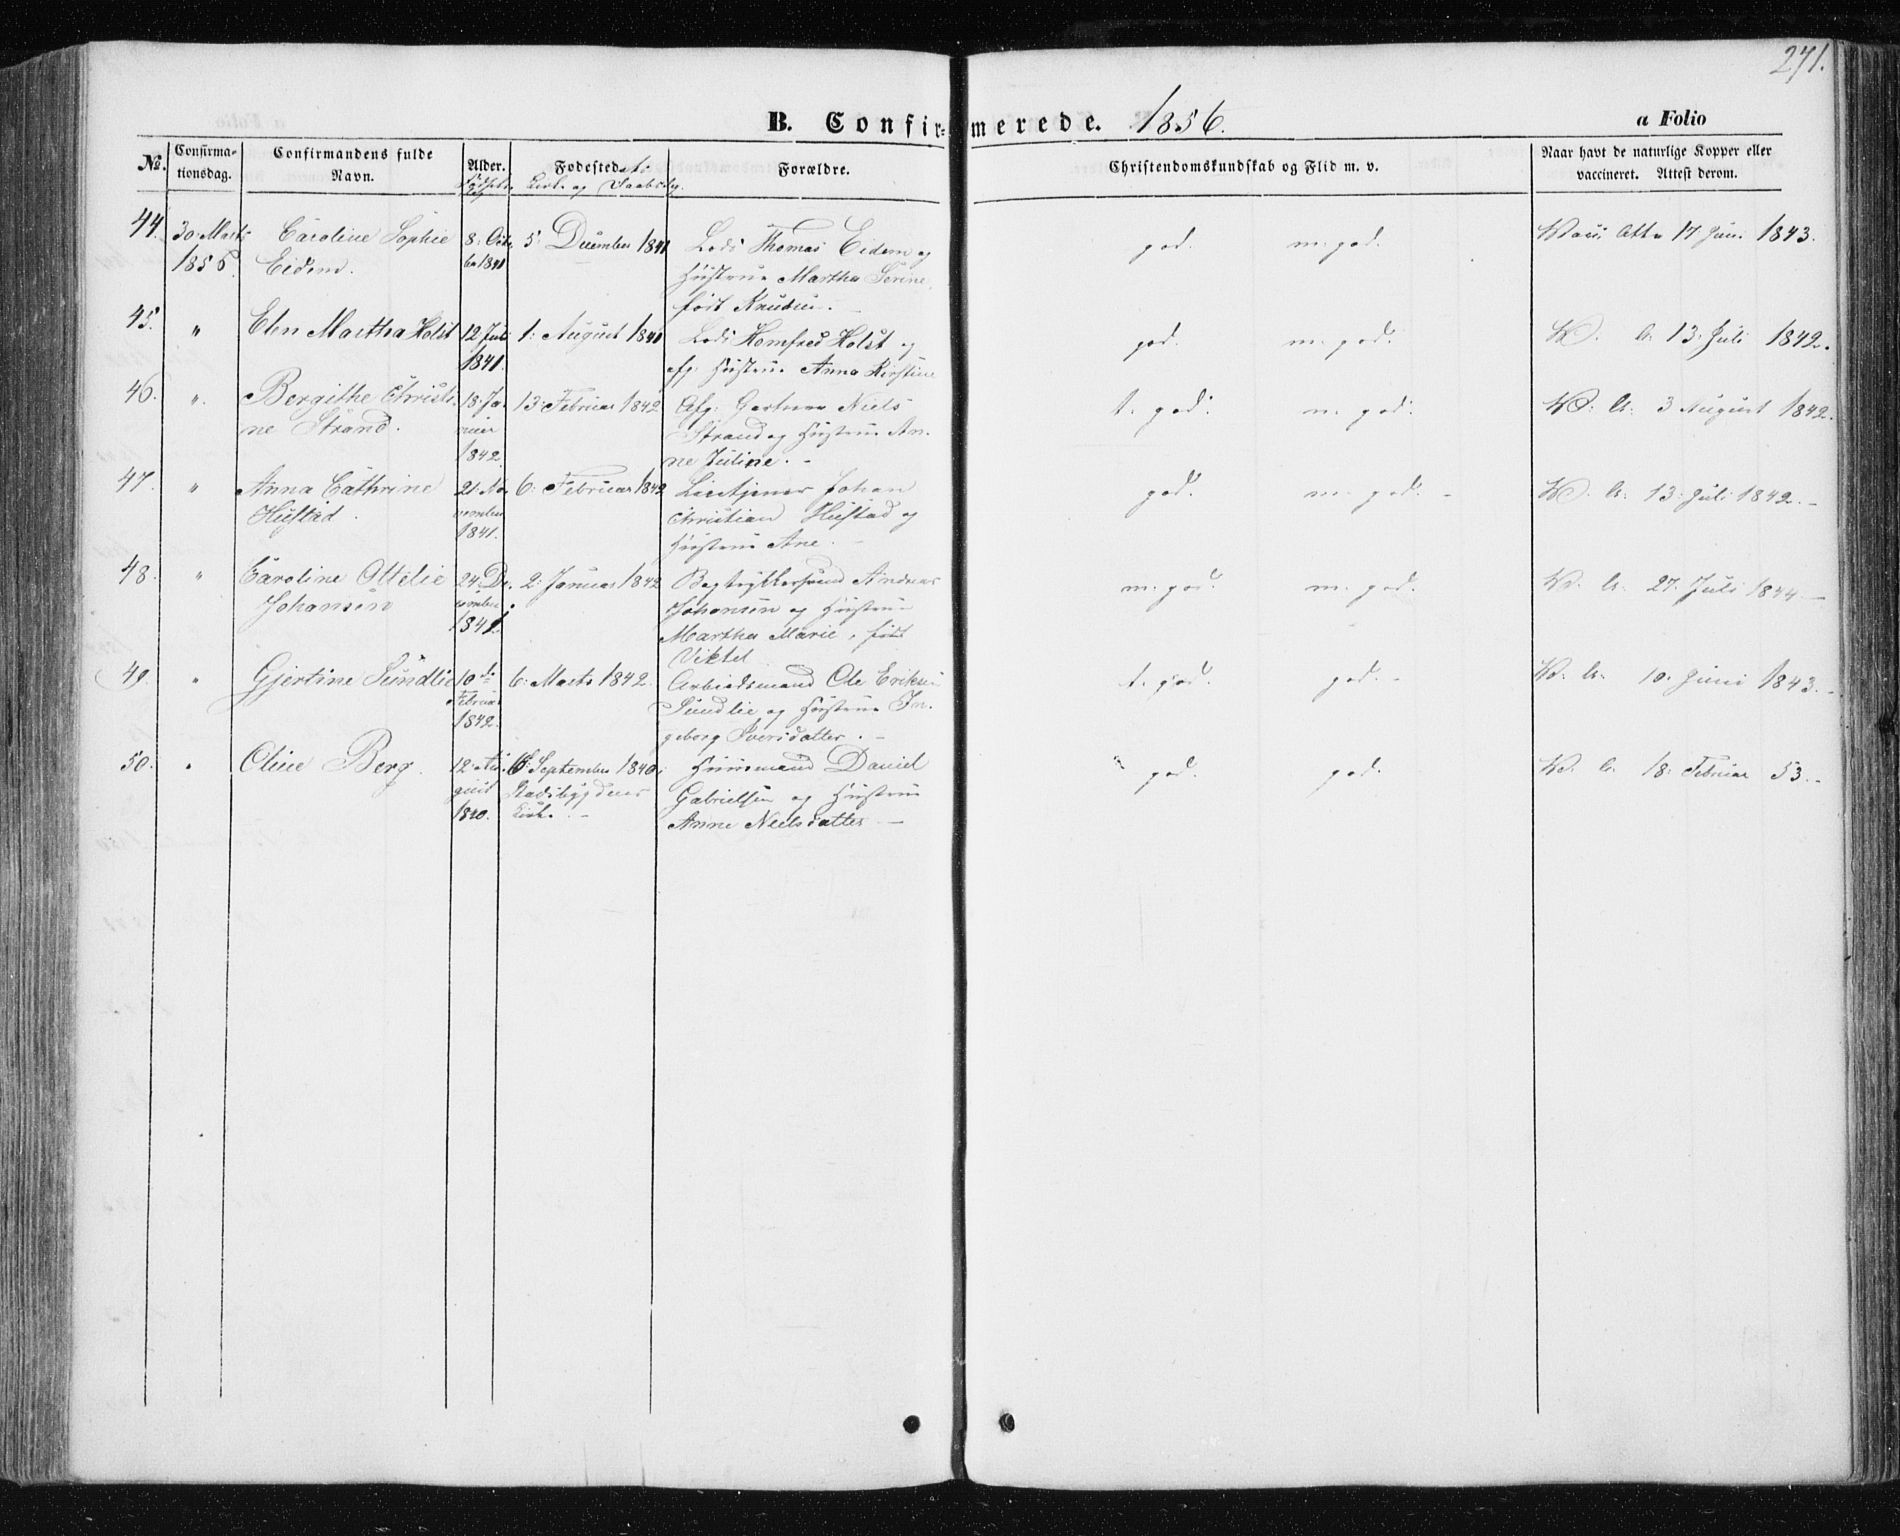 271.
B. Confirmerede. 1856.
a Folio
No.
Confirma-
tionsdag.
Confirmandens fulde
Navn.
Alder.
Fødested
Kirke og Daabsdag.
Forældre.
Christendomskundskab og Flid m. v.
Naar havt de naturlige Kopper eller
vaccineret. Attest derom.
44. 30 Marts Caroline Sophie 8: Octo 5: December 1841 Lods Thomas Eidem og god. m. god. Vacc. Att. 17 Juni 1843.
1856. Eidem. ber 1841 Hustrue Martha Serine,
født Knudsen.
45. " Elen Martha Holst 12 Juli 1: August 1841 Lods Homfred Holst og god. m. god. V. A. 13: Juli 1842.
1841. afg: Hustrue Anna Kirstine
46. ". Bergithe Christi- 18: Ja- 13: Februar 1842 Afg: Gartner Niels t. god. m. god. V: A: 3 August 1842.
ne Strand. nuar Strand og Hustrue An-
1842. ne Juline. -
47. " Anna Cathrine 21: No- 6: Februar 1842 Johan god. m. god. - V. A. 13: Juli 1842. -
Hustad. vember Christian Hustad og
1841. Hustrue Ane. -
48. " Caroline Ottelie 24 De- 2: Januar 1842 Bogtrykkersvend Andreas m. god. m. god. V. A. 27. Juli 1844. -
Johansen cember Johansen og Hustrue
1841. Martha Marie, født
Viktel
49. " Gjertine Sundlie 10de 6: Marts 1842. Arbeidsmand Ole Eriksen t. god. god. - V. A. 10. Juni 1843. -
Februar Sundlie og Hustrue In-
1842. geborg Iversdatter. -
50. " Oline Berg. 12: Au- 6: September 1840. Huusmand Daniel god. god. V. A. 18: Februar 53. -
gust Stadsbygdens Gabrielsen og Hustrue
1840. Kirke. - Anne Nielsdatter -